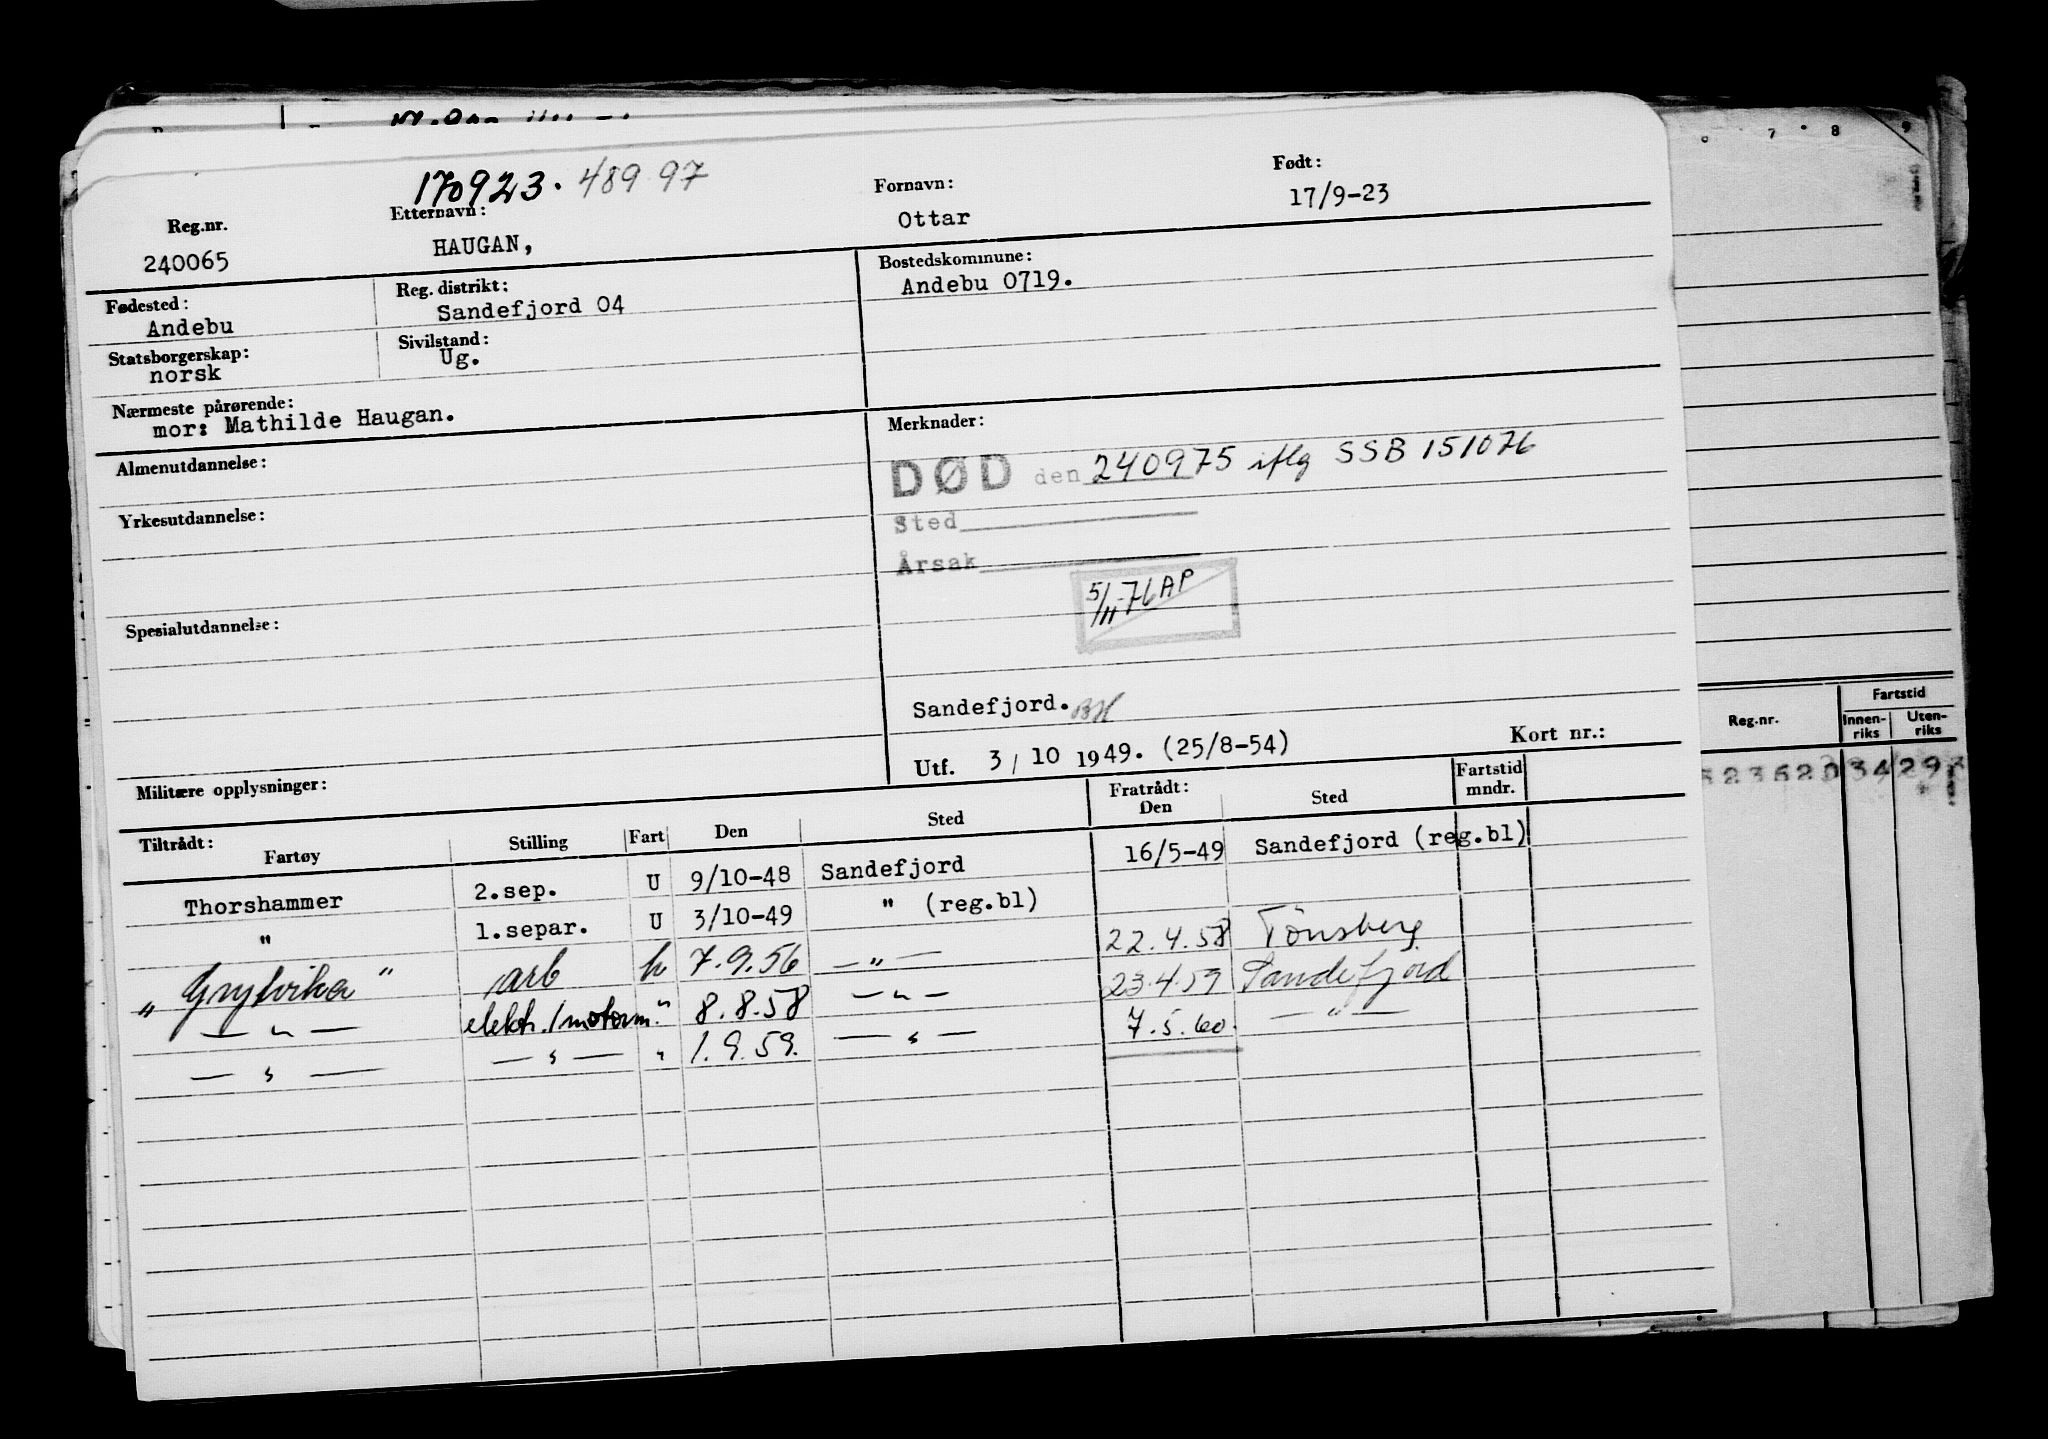 170923. 48997
Reg.nr. Etternavn: Fornavn: Født:
240065 HAUGAN, Ottar 17/9-23
Fødested: Reg. distrikt: Bostedskommune:
Andebu Sandefjord 04 Andebu 0719.
Statsborgerskap: Sivilstand:
norsk Ug.
Nærmeste pårørende:
mor: Mathilde Haugan.
Almenutdannelse:
Yrkesutdannelse:
Spesialutdannelse:
Militære opplysninger:
Merknader:
DØD den 240975 iflg SSB 151076
Sted
Årsak
5/11-76 AP
Sandefjord. BH
Utf. 3/10 1949. (25/8-54) Kort nr.:
Tiltrådt: Fratrådt: Fartstid
Fartøy Stilling Fart Den Sted Den Sted mndr.
Thorshammer 2.sep. U 9/10-48 Sandefjord 16/5-49 Sandefjord (reg.bl)
" 1.separ. U 3/10-49 " (reg.bl)
"Grytvika" arb h 7.9.56 —"— 22.4.58 Tønsberg
—"— elektr./motorm. " 8.8.58 —"— 23.4.59 Sandefjord
—"— —"— " 1.9.59. —"— 7.5.60. —"—
7 8 9
Reg.nr. Fartstid
Innen-riks Uten-riks
34 29